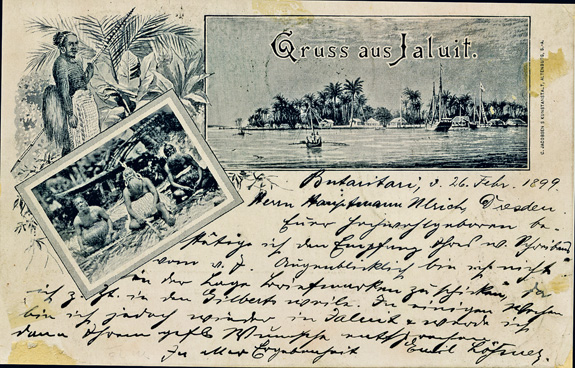 Gruss aus Jaluit.
Butaritari, d. 26. Febr. 1899.
Herrn Hauptmann Ulrich Dresden.
Euer Hochwohlgeboren be-
stätige ich den Empfang Ihres w. Schreibens
vom v. J. Augenblicklich bin ich nicht
in der Lage Briefmarken zu schicken, da
ich z. Zt. in den Gilberts weile. In einigen Wochen
bin ich jedoch wieder in Jaluit & werde ich
dann Ihrem gefl. Wunsche entsprechen.
In aller Ergebenheit Emil
C. JACOBSEN'S KUNSTANSTALT, ALTENBURG, S.-A.